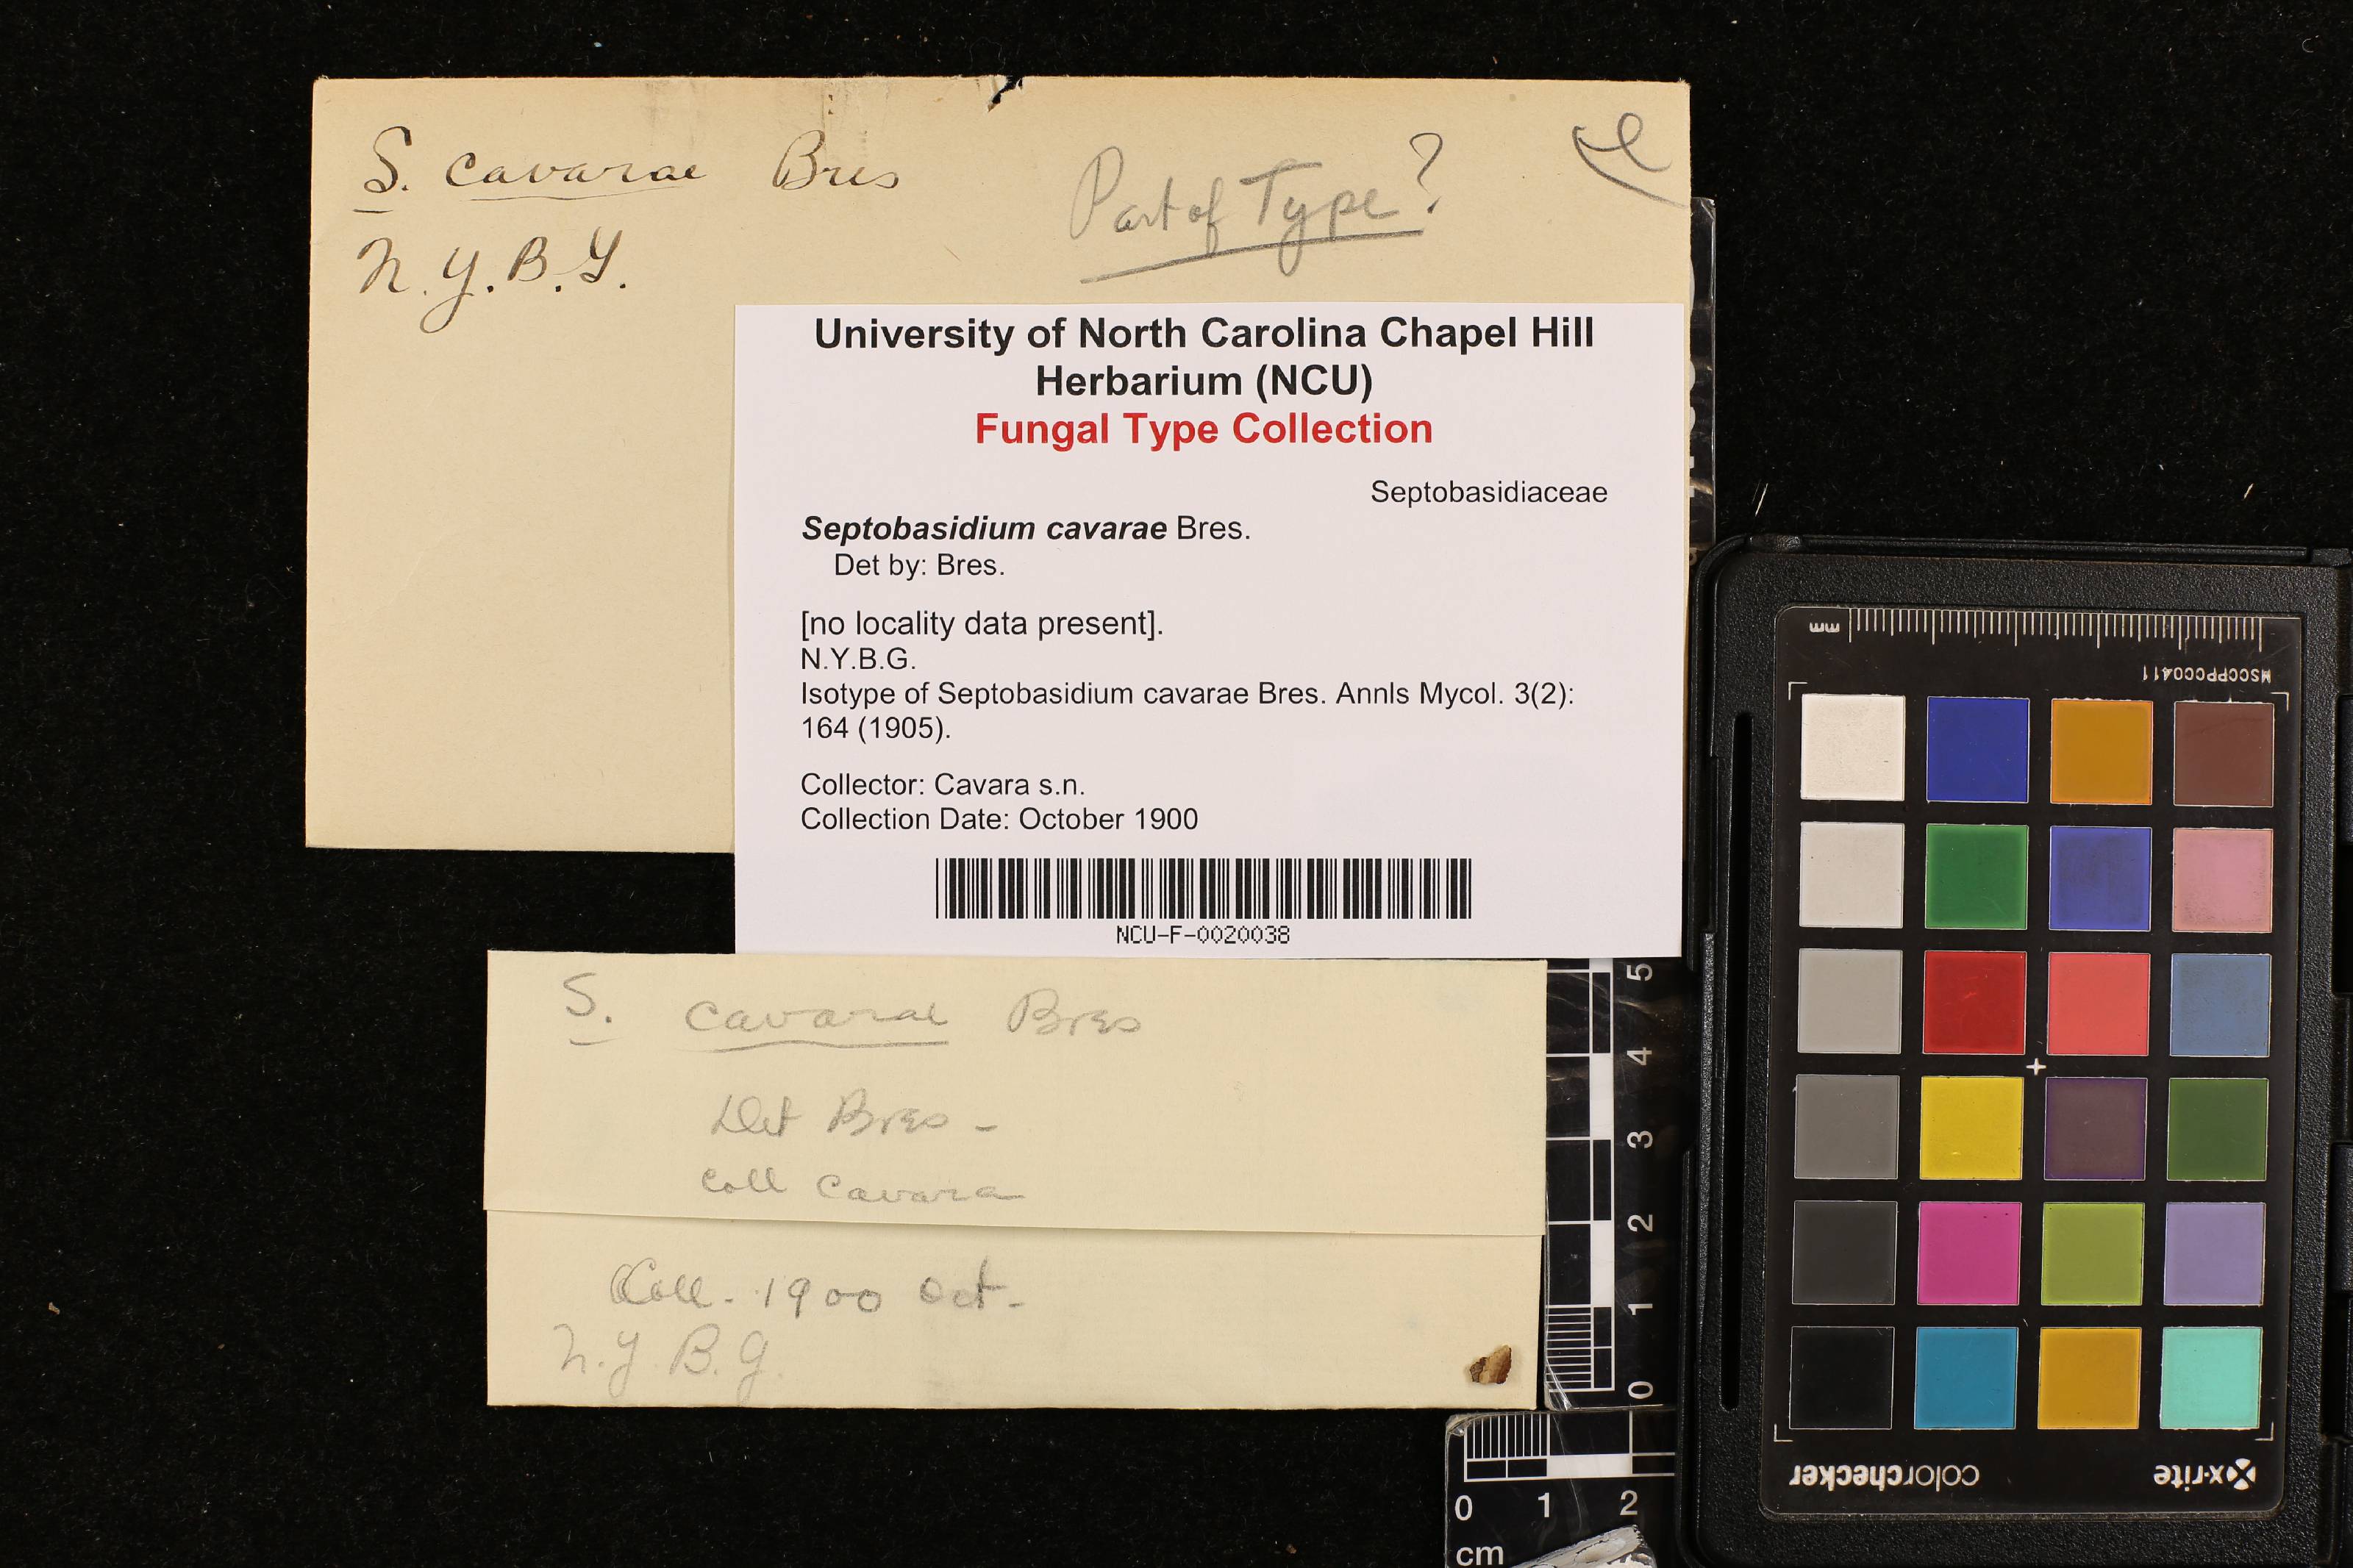 S. cavarae Bres
Part of Type?
N.Y.B.G.
University of North Carolina Chapel Hill
Herbarium (NCU)
Fungal Type Collection
Septobasidiaceae
Septobasidium cavarae Bres.
Det by: Bres.
[no locality data present].
N.Y.B.G.
Isotype of Septobasidium cavarae Bres. Annls Mycol. 3(2):
164 (1905).
Collector: Cavara s.n.
Collection Date: October 1900
NCU-F-0020038
S. cavarae Bres
Det Bres -
Coll Cavara
Coll - 1900 Oct -
N.Y.B.G.
5
4
3
2
1
0
0 1 2
cm
mm
MSCCPPCC0411
colorchecker
x-rite